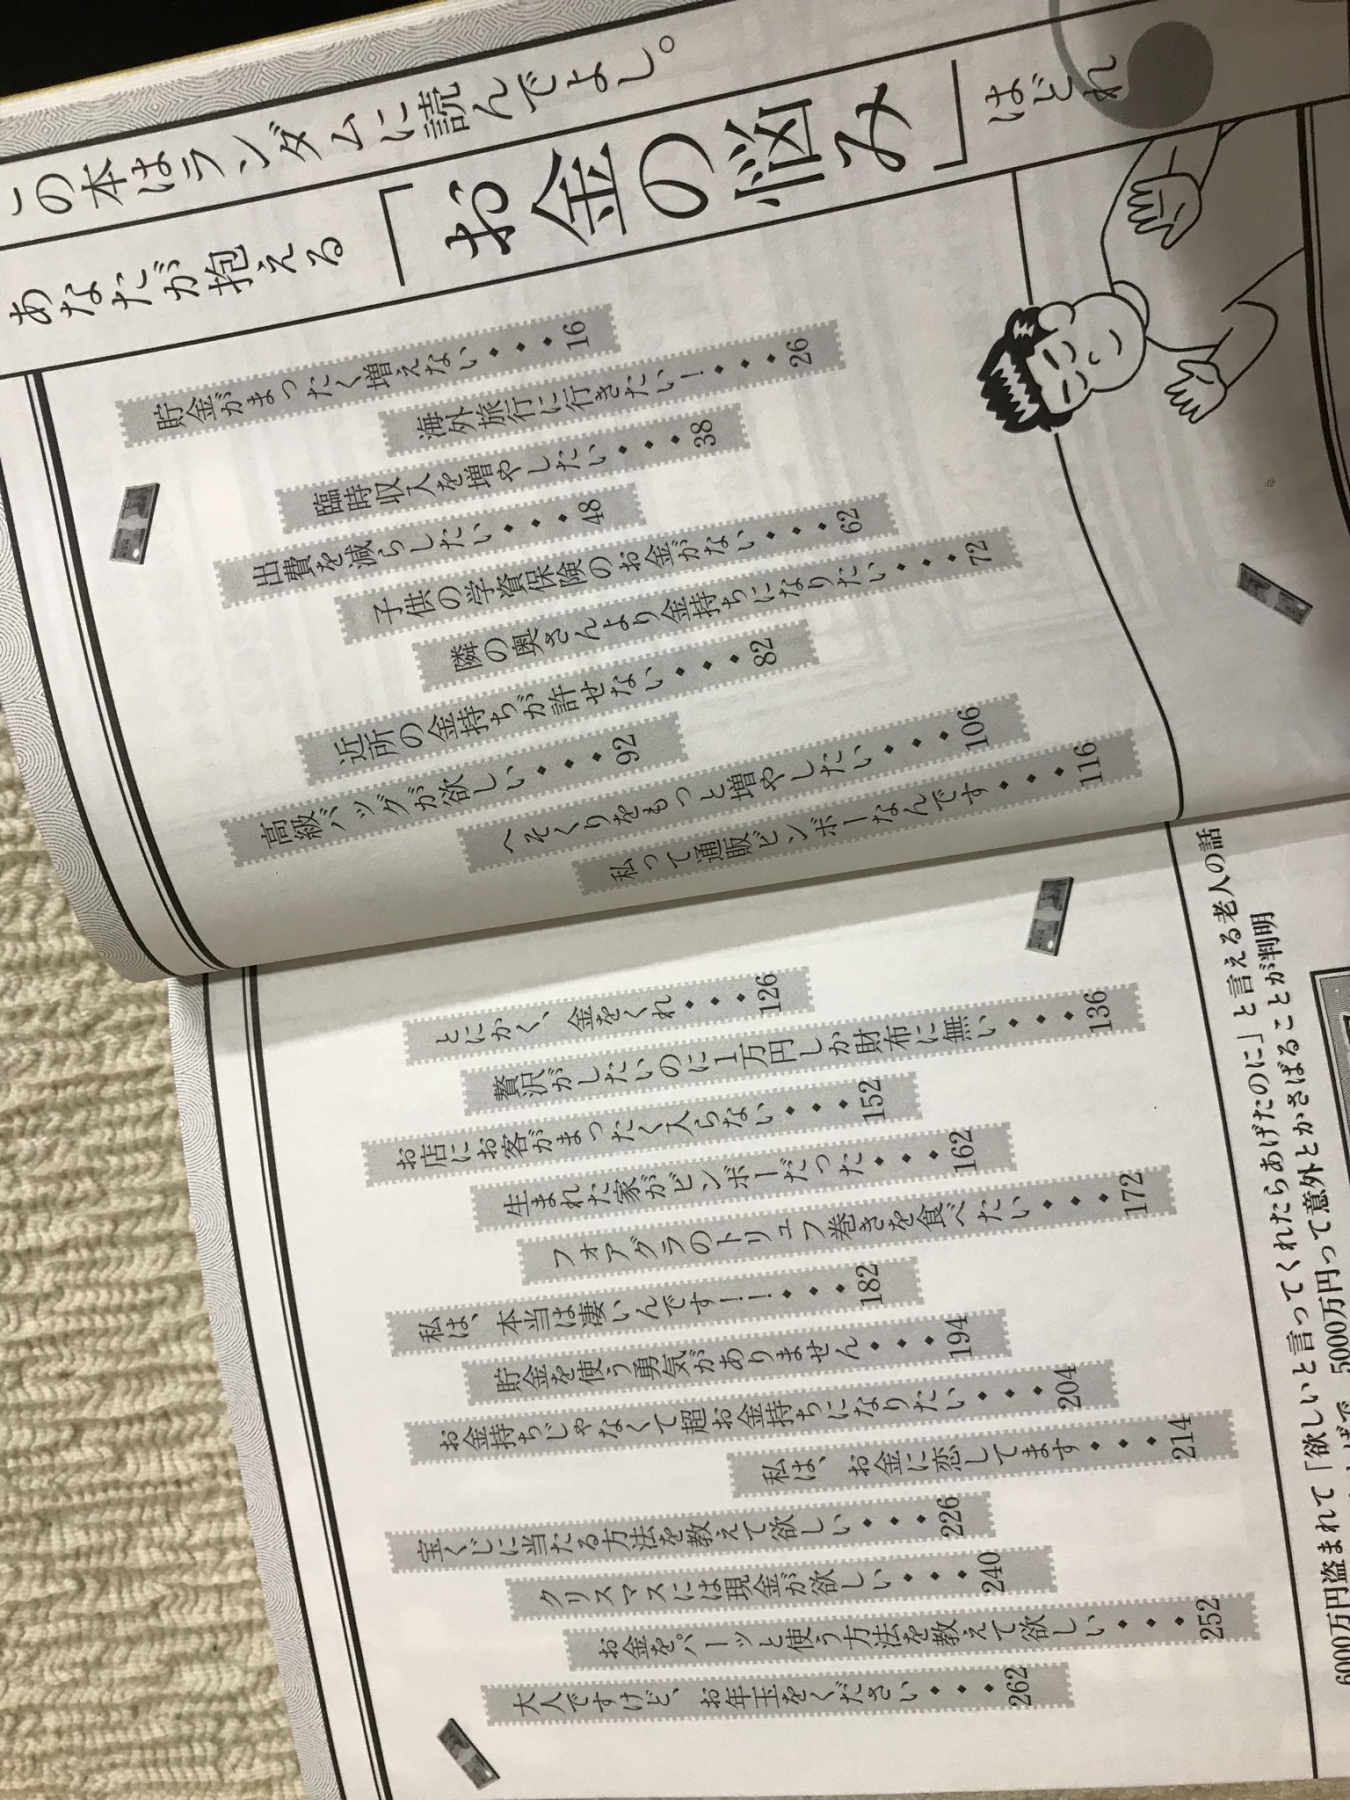 この本はランダムに読んでよし。
あなたが抱える「お金の悩み」はどれ
貯金がまったく増えない・・・16
海外旅行に行きたい！・・・26
臨時収入を増やしたい・・・38
出費を減らしたい・・・48
子供の学資保険のお金がない・・・62
隣の奥さんより金持ちになりたい・・・72
近所の金持ちが許せない・・・82
高級バッグが欲しい・・・92
へそくりをもっと増やしたい・・・106
私って通販ビンボーなんです・・・116
とにかく、金をくれ・・・126
贅沢がしたいのに1万円しか財布に無い・・・136
お店にお客がまったく入らない・・・152
生まれた家がビンボーだった・・・162
フォアグラのトリュフ巻きを食べたい・・・172
私は、本当は凄いんです！！・・・182
貯金を使う勇気がありません・・・194
お金持ちじゃなくて超お金持ちになりたい・・・204
私は、お金に恋してます・・・214
宝くじに当たる方法を教えて欲しい・・・226
クリスマスには現金が欲しい・・・240
お金をパーッと使う方法を教えて欲しい・・・252
大人ですけど、お年玉をください・・・262
6000万円盗まれて「欲しいと言ってくれたらあげたのに」と言える老人の話
5000万円って意外とかさばることが判明